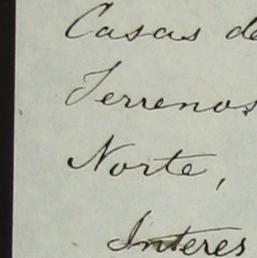 Casas de
Terrenos
Norte,
Interes